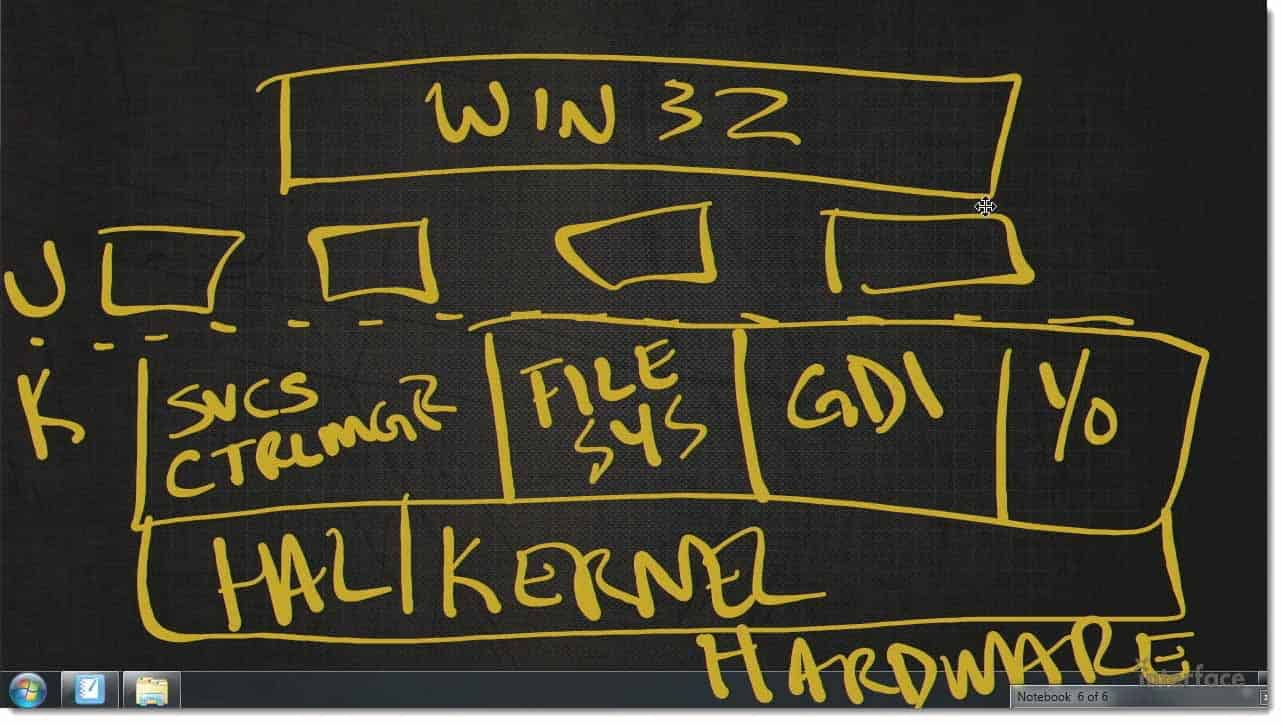 WIN 32
U
K
SVCS
CTRLMGR
FILE
SYS
GDI
I/O
HAL
KERNEL
HARDWARE
interface
Notebook 6 of 6